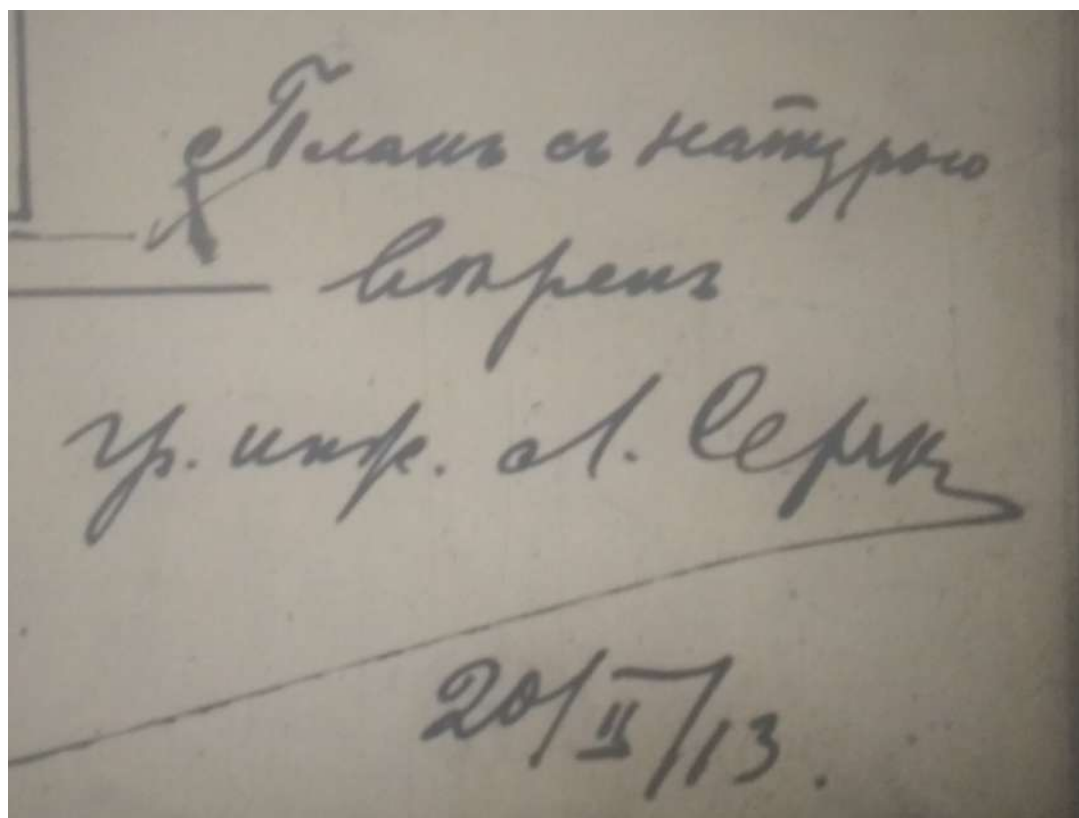 Планъ съ натурою
вѣренъ
гр. инж. Л. Серк
20/II/13.